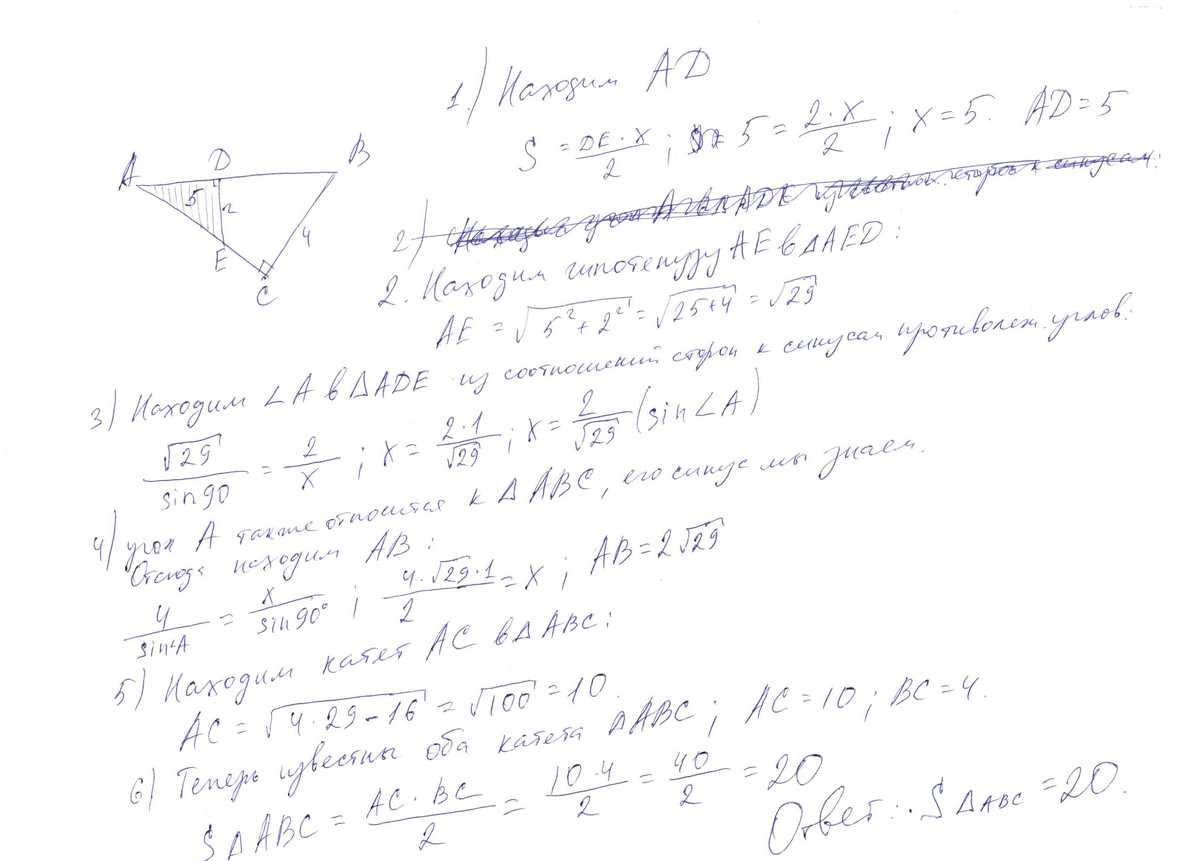 1.) Находим AD
S = DE·x / 2 ; 5 = 2·x / 2 ; x = 5. AD = 5
A D B
5 2 4
E
C
2)
2. Находим гипотенузу AE в △AED:
AE = √(5² + 2²) = √(25+4) = √29
3) Находим ∠A в △ADE из соотношений сторон к синусам противолеж. углов:
√29 / sin 90 = 2 / x ; x = 2·1 / √29 ; x = 2 / √29 (sin∠A)
4) угол A также относится к △ABC, его синус мы знаем.
Отсюда находим AB:
4 / sin∠A = x / sin 90° ; 4·√29·1 / 2 = x ; AB = 2√29
5) Находим катет AC в △ABC:
AC = √(4·29 − 16) = √100 = 10.
6) Теперь известны оба катета △ABC ; AC = 10 ; BC = 4.
S△ABC = AC·BC / 2 = 10·4 / 2 = 40 / 2 = 20
Ответ: S△ABC = 20.